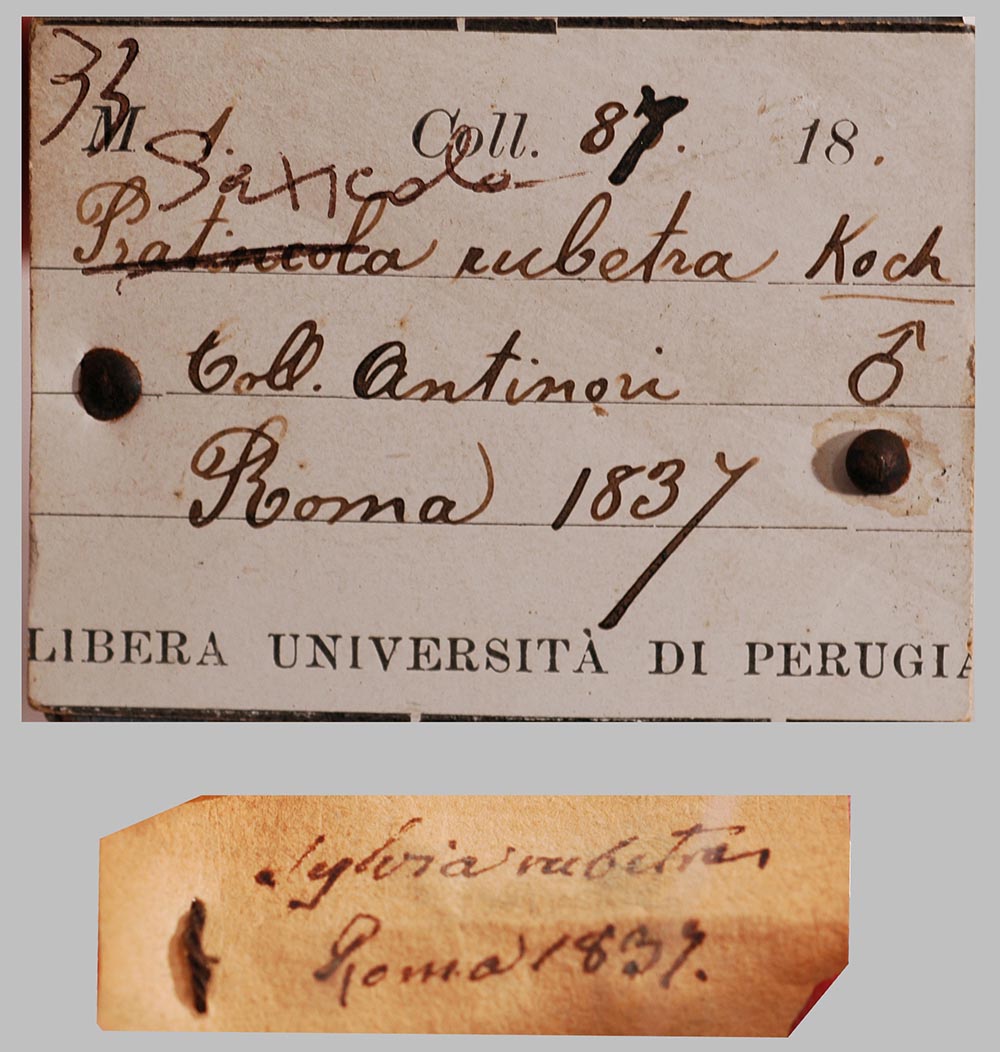 33
M Coll. 87. 18 .
Saxicola
Pratincola rubetra Koch
Coll. Antinori ♂
Roma 1837
LIBERA UNIVERSITÀ DI PERUGIA
Sylvia rubetra
Roma 1837.